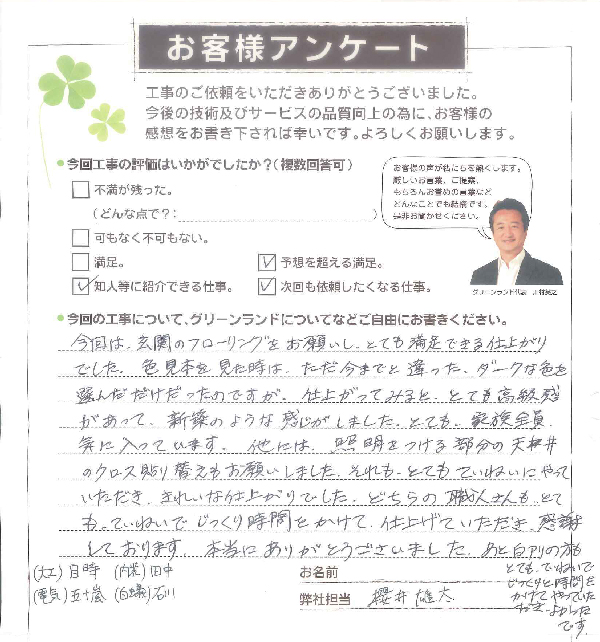 お客様アンケート
工事のご依頼をいただきありがとうございました。
今後の技術及びサービスの品質向上の為に、お客様の
感想をお書き下されば幸いです。よろしくお願いします。
今回工事の評価はいかがでしたか？(複数回答可)
不満が残った。
(どんな点で？: )
可もなく不可もない。
満足。
予想を超える満足。
知人等に紹介できる仕事。
次回も依頼したくなる仕事。
お客様の声が私たちを強くします。
厳しいお言葉、ご提案、
もちろんお誉めの言葉など
どんなことでも結構です。
是非お聞かせください。
グリーンランド代表
今回の工事について、グリーンランドについてなどご自由にお書きください。
今回は、玄関のフローリングをお願いし、とても満足できる仕上がり
でした。色見本を見た時は、ただ今までと違った、ダークな色を
選んだだけだったのですが、仕上がってみると、とても高級感
があって、新築のような感じがしました。とても、家族全員
気に入っています。他には、照明をつける部分の天井
のクロス貼り替えもお願いしました。それも、とてもていねいにやって
いただき、きれいな仕上がりでした。どちらの職人さんも、とて
も、ていねいでじっくり時間をかけて、仕上げていただき、感謝
しております。本当にありがとうございました。あと白アリの方も
とても、ていねいで
じっくりと時間を
かけてやっていた
だき、よかった
です。
(大工) 日時 (内装) 田中
(電気) 五十嵐 (白蟻) 石川
お名前
弊社担当 櫻井 雄太